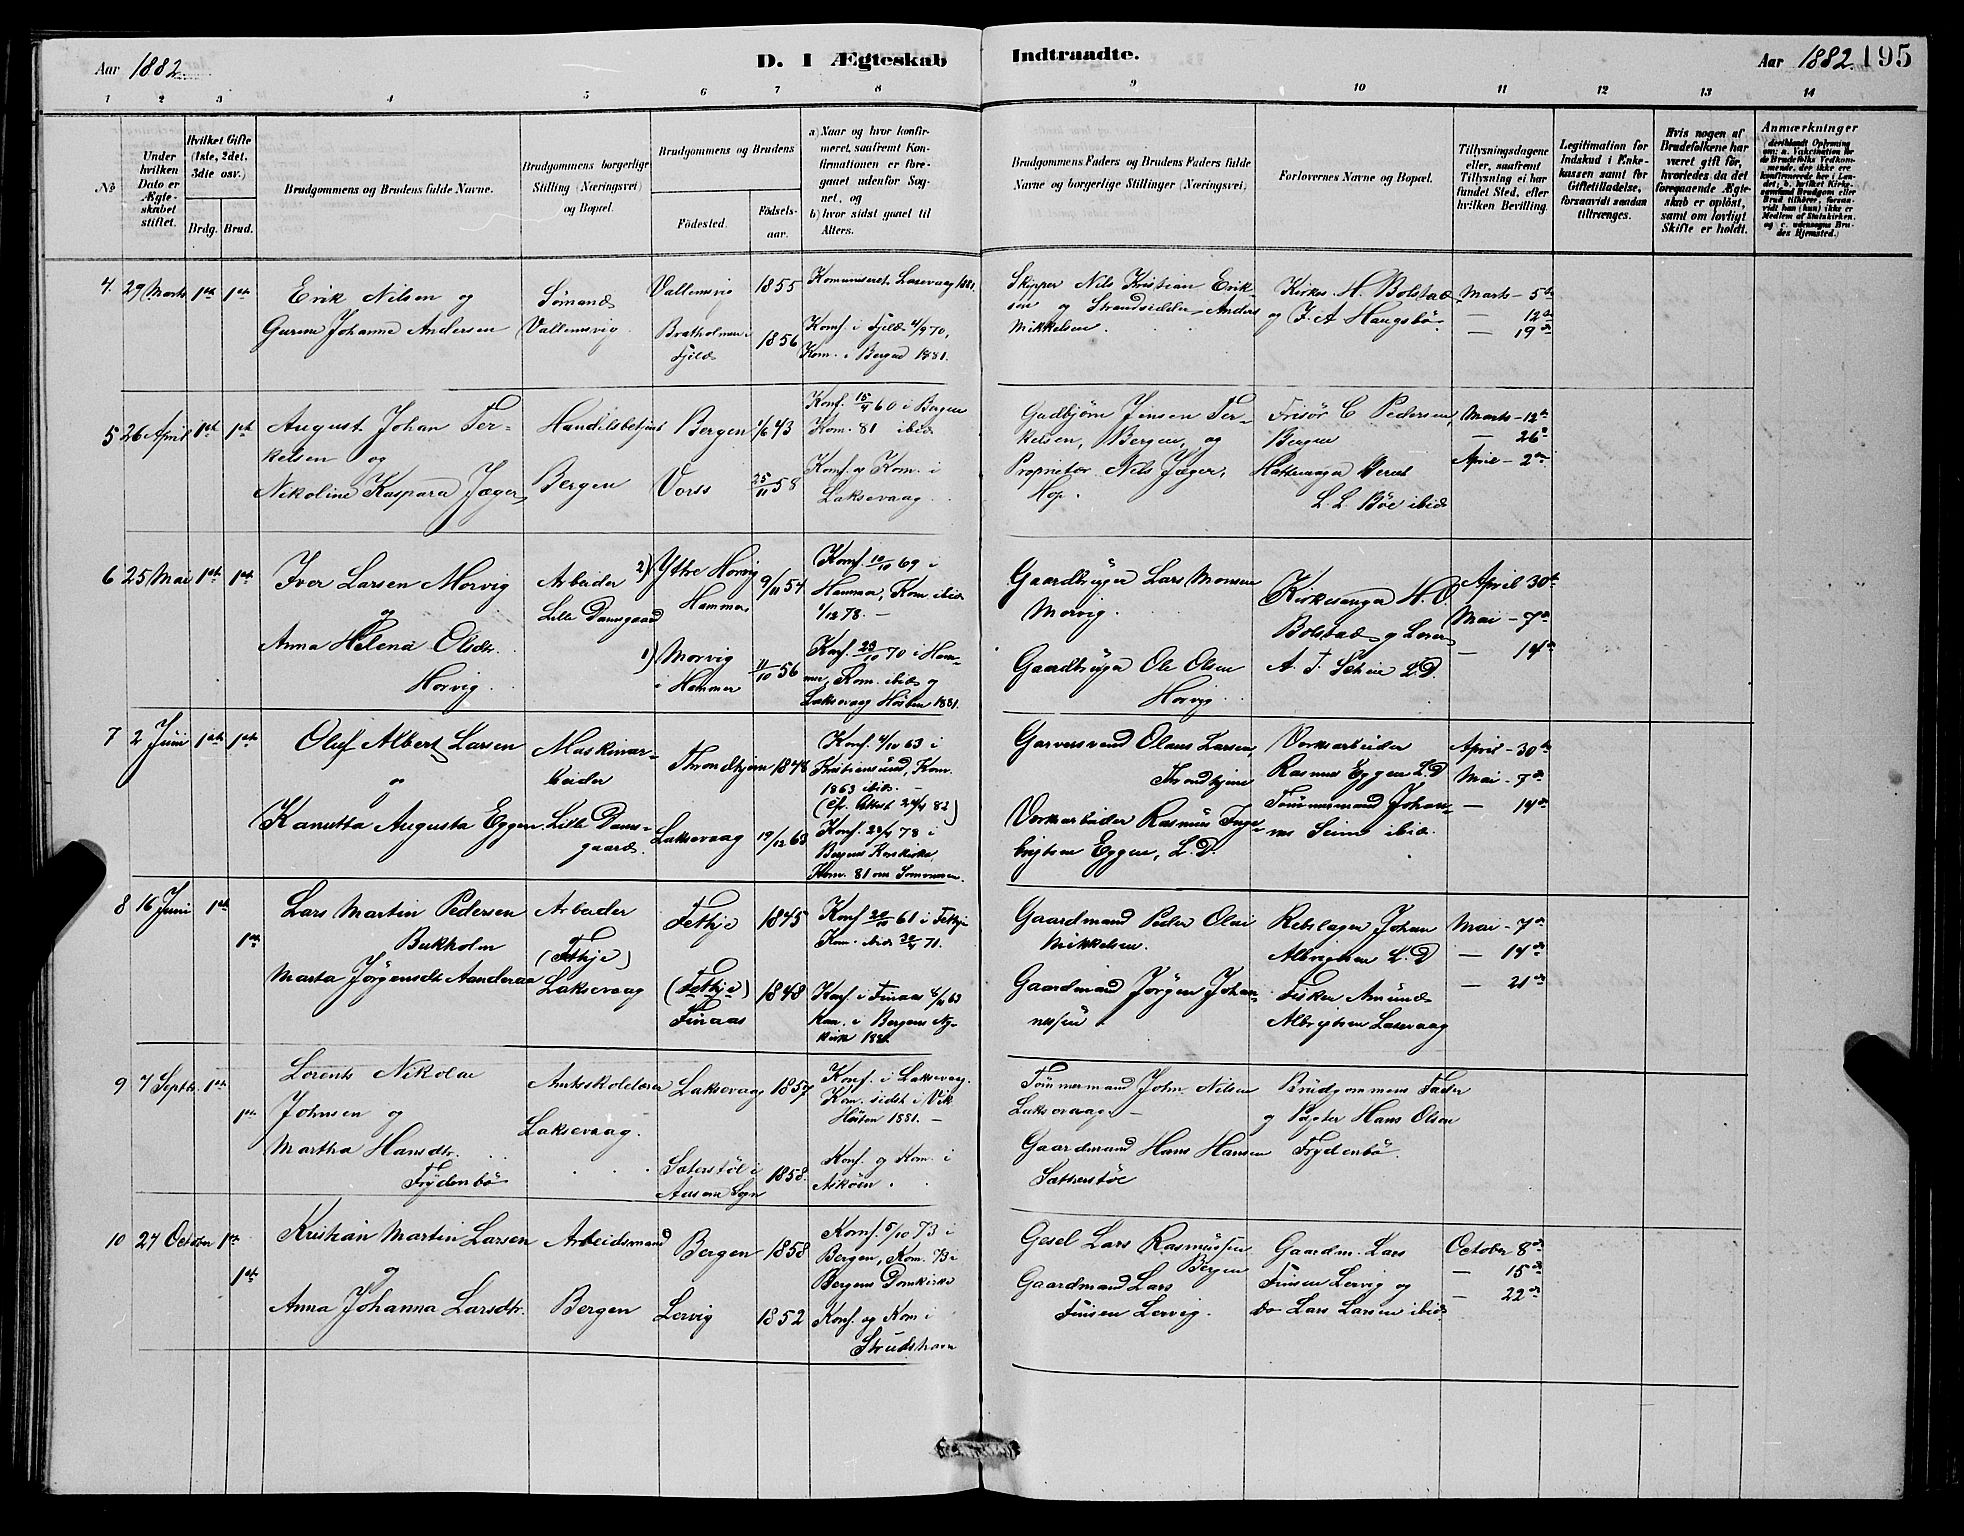 Aar 1882.
D. I Ægteskab
Indtraadte.
Aar 1882. 195
1 2 3 4 5 6 7 8 9 10 11 12 13 14
№
Under
hvilken
Dato er
Ægte-
skabet
stiftet.
Hvilket Gifte
(1ste, 2det,
3die osv.)
Brdg. Brud.
Brudgommens og Brudens fulde Navne.
Brudgommens borgerlige
Stilling (Næringsvei)
og Bopæl.
Brudgommens og Brudens
Fødested.
Fødsels-
aar.
a) Naar og hvor konfir-
meret, saafremt Kon-
firmationen er fore-
gaaet udenfor Sog-
net, og
b) hvor sidst gaaet til
Alters.
Brudgommens Faders og Brudens Faders fulde
Navne og borgerlige Stillinger (Næringsvei)
Forlovernes Navne og Bopæl.
Tillysningsdagene
eller, saafremt
Tillysning ei har
fundet Sted, efter
hvilken Bevilling.
Legitimation for
Indskud i Enke-
kassen samt for
Giftetilladelse,
forsaavidt saadan
tiltrænges.
Hvis nogen af
Brudefolkene har
været gift før,
hvorledes da det
foregaaende Ægte-
skab er opløst,
samt om lovligt
Skifte er holdt.
Anmærkninger
(deriblandt Oplysning
om: a. Vakcination for
de Brudefolks Vedkom-
mende, der ikke ere
konfirmerede her i Lan-
det; b. hvilket Kirke-
samfund Brudgom eller
Brud tilhører, forsaa-
vidt han (hun) ikke er
Medlem af Statskirken,
og c. udensogns Bru-
des Hjemsted.)
4. 29 Marts 1ste 1ste
Erik Nilsen og
Gurine Johanne Andersen
Sømand
Vallemsvig
Vallemsvig 1855
Bratholmen i
Fjeld 1856
Komuniceret Laxevaag 1881.
Konf. i Fjeld 4/9 70,
Kom. i Bergen 1881.
Skipper Nils Kristian Erik-
sen og Strandsidder Anders
Mikkelsen.
Kirkes. H. Bolstad
og J. A Haugsbø.
Marts - 5te
— 12te
— 19de
5 26 April 1ste 1ste
August Johan Ter-
kelsen og
Nikoline Kaspara Jæger
Handelsbetjent
Bergen
Bergen 1/6 43
Voss 25/11 58
Konf. 15/4 60 i Bergen
Kom. 81 ibid
Konf. og Kom. i
Laksevaag.
Gudbjørn Jensen Ter-
kelsen, Bergen, og
Proprietær Nils Jæger,
Hop.
Frisør C Pedersen,
Bergen
L. L. Bøe ibid
Marts - 12te
— 26de
April - 2den
6 25 Mai 1ste 1ste
Iver Larsen Morvig
og
Anna Helena Olsdtr.
Horvig.
Arbeider
Lille Damsgaard
2) Ytre Horvig
Hammer 9/11 54
1) Morvig
i Hammer 11/10 56
Konf. 10/10 69 i
Hammer, Kom. ibid
1/12 78. —
Konf. 23/10 70 i Ham-
mer, Kom. ibid og
Laksevaag Høsten 1881.
Gaardbruger Lars Monsen
Morvig.
Gaardbruger Ole Olsen
Horvig
Kirkesanger H. O
Bolstad og Lærer
A. T. Scheie L. D.
April 30te
Mai - 7de
— 14de
7 2 Juni 1ste 1ste
Oluf Albert Larsen
og
Kanutta Augusta Eggen
Maskinar-
beider
Lille Dams-
gaard.
Throndhjem 1848
Laksevaag 19/12 63
Konf. 4/10 63 i
Kristiansund, Kom.
1863 ibid. —
(Cfr. Attest 24/4 82)
Konf. 28/4 78 i
Bergens Korskirke,
Kom. 81 om Sommeren.
Garversvend Olaus Larsen,
Throndhjem
Værksarbeider Rasmus Inge-
brigtsen Eggen, L. D.
Værksarbeider
Rasmus Eggen L. D
Tømmermand Johan-
nes Seim ibid.
April - 30te
Mai - 7de
— 14de
8 16 Juni 1ste
1ste
Lars Martin Pedersen
Bukholm
og
Marta Jørgensdtr. Aanderaa
Arbeider
(Fethje)
Laksevaag
Fethje 1845
(Fethje)
Finaas 1848
Konf. 20/10 61 i Fethje
Kom. ibid 30/4 71.
Konf. i Finaas 8/11 63
Kom. i Bergens Ny-
kirke 1881.
Gaardmand Peder Olai
Mikkelsen.
Gaardmand Jørgen Johan-
nessen.
Rebslager Johan
Albrigtsen L. D
Fisker Amund
Albrigtsen Laxevaag
Mai - 7de
— 14de
— 21de
9 7 Septbr. 1ste
1ste
Lorents Nikolai
Johnsen og
Martha Hansdtr.
Frydenbø
Amtsskolelærer
Laksevaag.
Laksevaag 1857
Sæterstøl i
1858.
Konf. i Laksevaag.
Kom. sidst i Vik
Høsten 1881. —
Konf. og Kom. i
Askøen.
Tømmermand John Nilsen
Laksevaag —
Gaardmand Hans Hansen
Sætterstøl
Brudgommens Fader
og Pagter Hans Olsen
Frydenbø.
10 27 October 1ste
1ste
Kristian Martin Larsen
og
Anna Johanna Larsdtr.
Arbeidsmand
Bergen
Bergen 1858
Lervig 1852
Konf. 5/10 73 i
Bergen, Kom. 73 i
Bergens Domkirke
Konf. og Kom i
Strudshavn
Gesel Lars Rasmussen
Bergen
Gaardmand Lars
Finsen Lervig.
Gaardm. Lars
Finsen Lervig og
do Lars Larsen ibid
October 8de
— 15de
— 22de